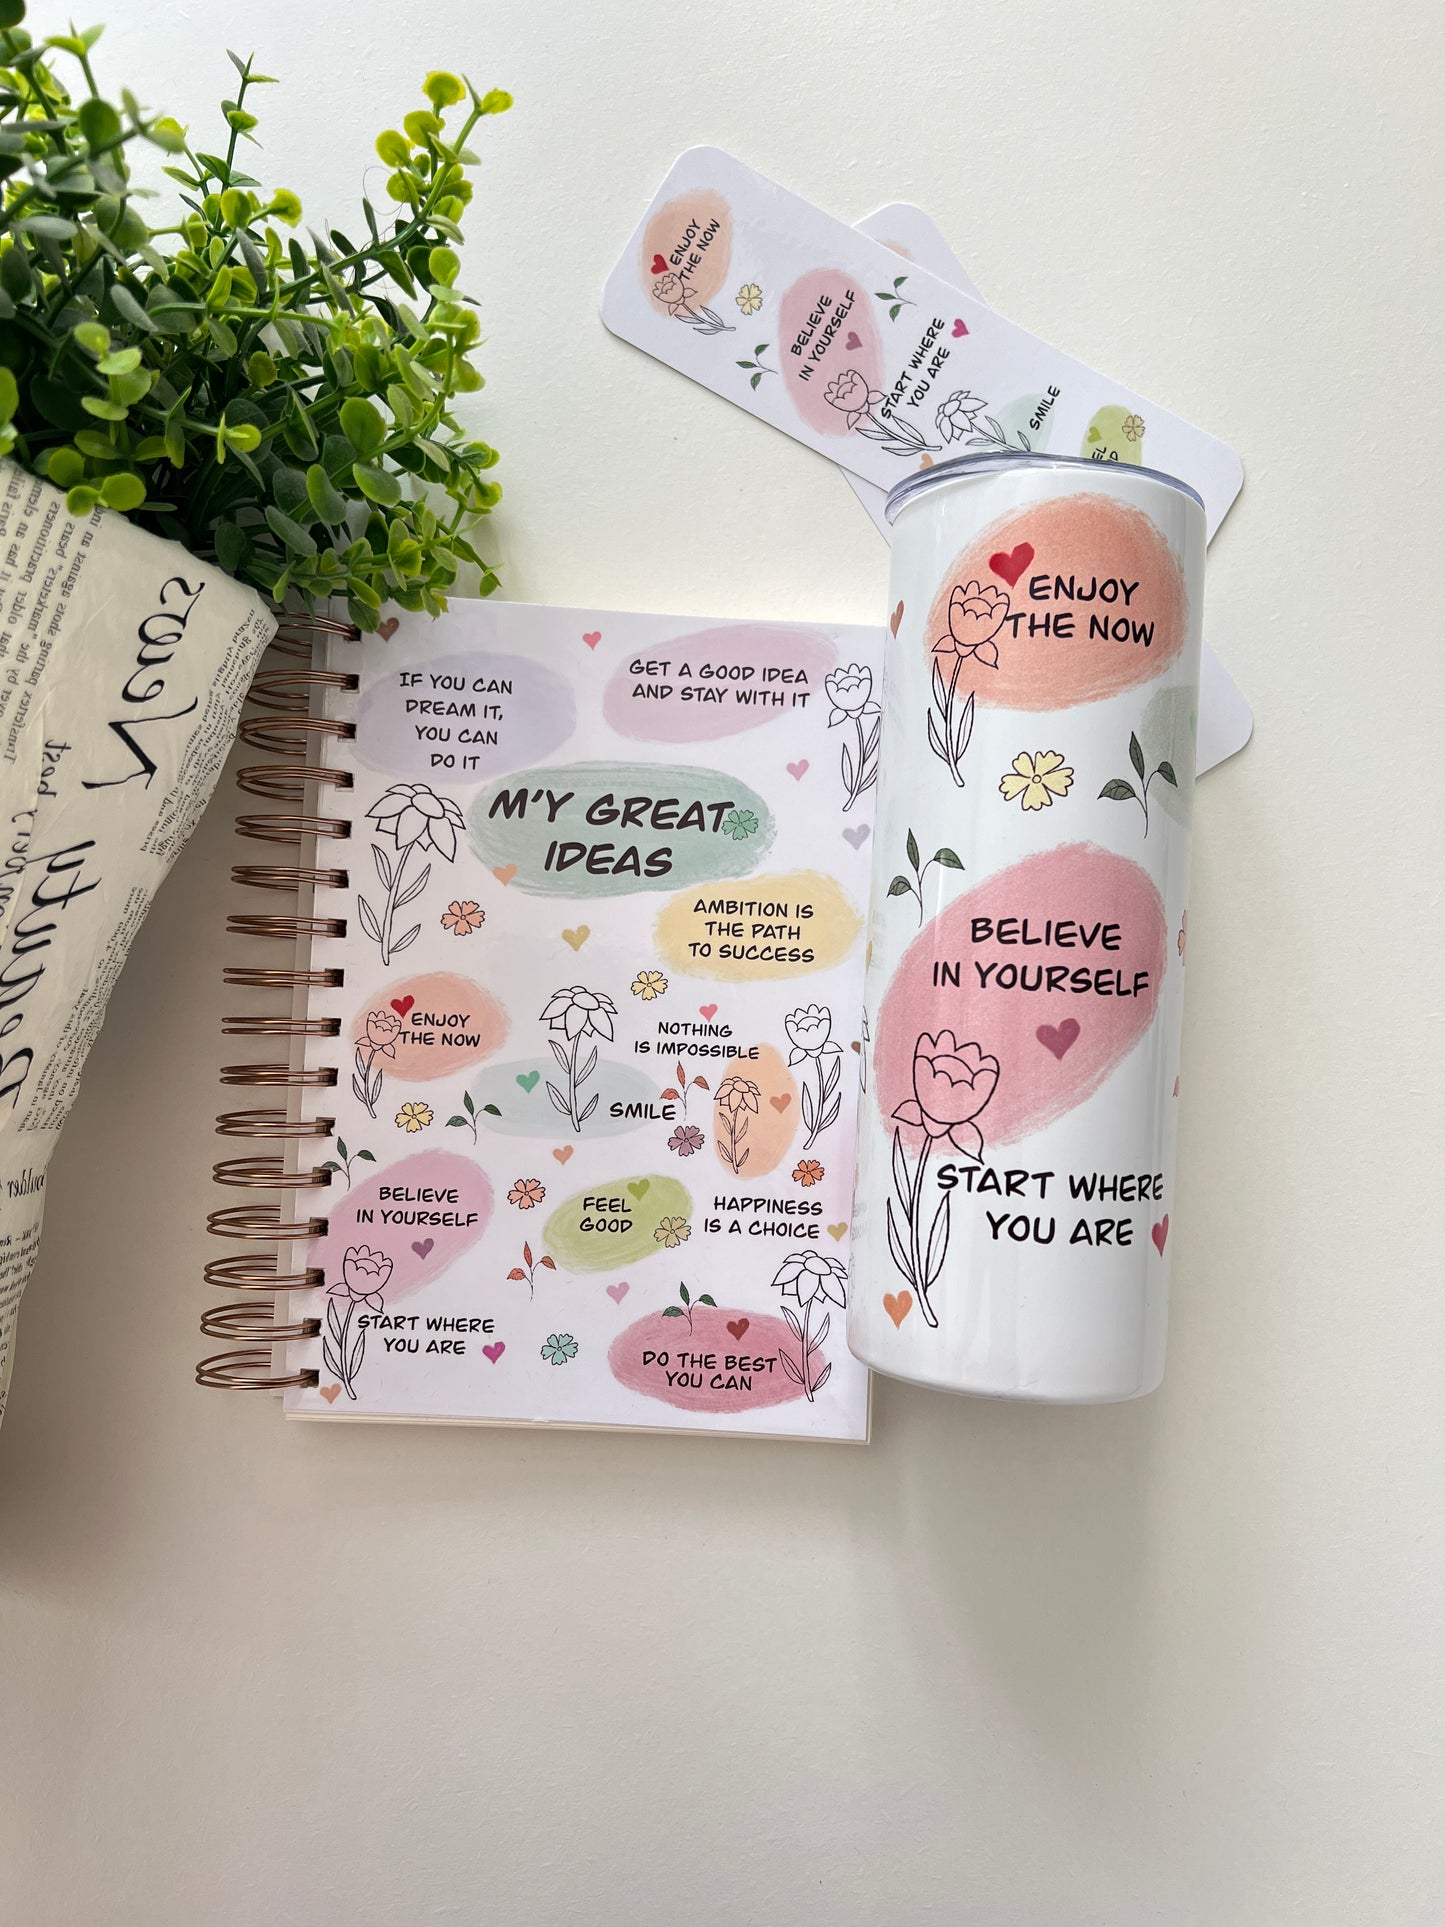 ENJOY
THE NOW
BELIEVE
IN YOURSELF
START WHERE
YOU ARE
SMILE
IF YOU CAN
DREAM IT,
YOU CAN
DO IT
GET A GOOD IDEA
AND STAY WITH IT
M'Y GREAT
IDEAS
AMBITION IS
THE PATH
TO SUCCESS
ENJOY
THE NOW
NOTHING
IS IMPOSSIBLE
SMILE
BELIEVE
IN YOURSELF
FEEL
GOOD
HAPPINESS
IS A CHOICE
START WHERE
YOU ARE
DO THE BEST
YOU CAN
ENJOY
THE NOW
BELIEVE
IN YOURSELF
START WHERE
YOU ARE
News